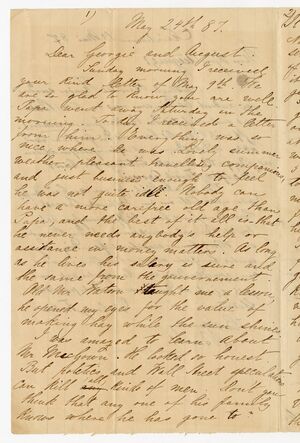 1)
May 24th 87.
Dear Georgie and August.
Sunday morning I received
your kind letter of May 9th. We
are so glad to know you are well.
Papa went away Saturday in the
morning. To day I received a letter
from him. Everything was so
nice, where he was, lovely summer
weather, pleasant travelling companions,
and just business enough to feel
he was not quite idle. Nobody can
have a more carefree old age than
Papa, and the best of it all is that
he never needs anybody's help or
assistance in money matters. As long
as he lives his salary is sure and
the same from the
Mr. taught me a lesson,
he opened my eyes to the value of
making hay while the sun shines
I was amazed to learn about
Mr. McGown. He looked so honest
But politics and Wall Street speculation
can kill all kinds of men. Don't you
think that any one of his family
knows where he has gone to?